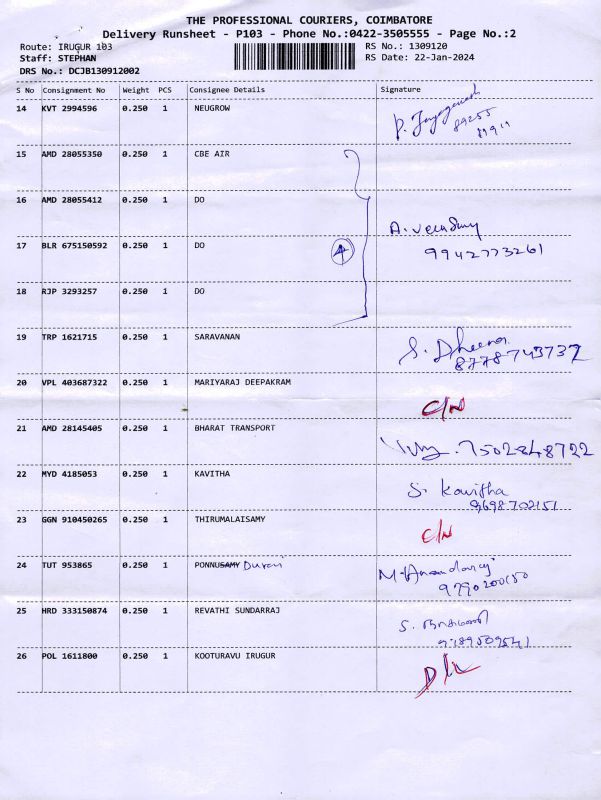 THE PROFESSIONAL COURIERS, COIMBATORE
Delivery Runsheet - P103 - Phone No.:0422-3505555 - Page No.:2
Route: IRUGUR 103
RS No.: 1309120
Staff: STEPHAN
RS Date: 22-Jan-2024
DRS No.: DCJB130912002
S No Consignment No Weight PCS Consignee Details Signature
14 KVT 2994596 0.250 1 NEUGROW
15 AMD 28055350 0.250 1 CBE AIR
16 AMD 28055412 0.250 1 DO
17 BLR 675150592 0.250 1 DO 4 9942773261
18 RJP 3293257 0.250 1 DO
19 TRP 1621715 0.250 1 SARAVANAN S. Dheena
8778743737
20 VPL 403687322 0.250 1 MARIYARAJ DEEPAKRAM C/N
21 AMD 28145405 0.250 1 BHARAT TRANSPORT 7502848722
22 MYD 4185053 0.250 1 KAVITHA S. Kavitha
9698702151
23 GGN 910450265 0.250 1 THIRUMALAISAMY C/N
24 TUT 953865 0.250 1 PONNUSAMY Durai
25 HRD 333150874 0.250 1 REVATHI SUNDARRAJ
26 POL 1611800 0.250 1 KOOTURAVU IRUGUR